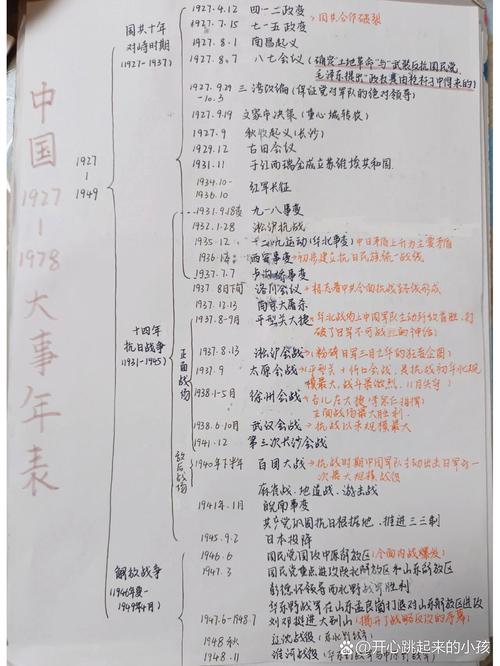 中国1927-1978大事年表
1927-1949
国共十年对峙时期(1927-1937)
1927.4.12 四一二政变
1927.7.15 七一五政变 >国共合作破裂
1927.8.1 南昌起义
1927.8.7 八七会议(确定"土地革命"与"武装反抗国民党,
毛泽东提出"政权是由枪杆子中得来的")
1927.9.29-10.3 三湾改编(保证党对军队的绝对领导)
1927.9.19 文家市决策(重心城转农)
1927.9 秋收起义(长沙)
1929.12 古田会议
1931.11 于江西瑞金成立苏维埃共和国
1934.10-1936.10 红军长征
十四年抗日战争(1931-1945)
1931.9.18 九一八事变
1932.1.28 淞沪抗战
1935.12 一二九运动(华北事变)中日矛盾上升为主要矛盾
1936.12 西安事变→初步建立抗日民族统一战线
1937.7.7 卢沟桥事变
1937.8下旬 洛川会议→标志着中共全面抗战路线形成
1937.12.13 南京大屠杀
正面战场
1937.8-9月 平型关大捷→华北战场上中国军队主动歼敌首胜,打
破了日军不可战胜的神话
1937.8.13 淞沪会战→(粉碎日军三月亡华的狂妄企图)
1937.9 太原会战→(平型关+忻口会战,是抗战初华北规
模最大,战斗最激烈,11月失守)
1938.1-5月 徐州会战→台儿庄大捷(李宗仁指挥)
正面战场最大胜利.
1938.6-10月 武汉会战→抗战以来规模最大
1941.12 第三次长沙会战
敌后战场
1940年下半年 百团大战→抗战时期中国军队主动出击日军的一
次最大规模战役
麻雀战、地道战、游击战
1941年.1月 皖南事变
共产党巩固抗日根据地、推进三三制
1945.9.2 日本投降
解放战争
1946.6 国民党围攻中原解放区(全面内战爆发)
1947.3 国民党重点进攻陕北解放区和山东解放区
彭德怀领导西北野战军胜利
华东野战军在山东孟良崮打退对山东解放区进攻
1947.6-1948.7 刘邓挺进大别山(揭开了战略反攻的序幕)
1948秋 辽沈战役
1948.11 淮河战役
@开心跳起来的小孩